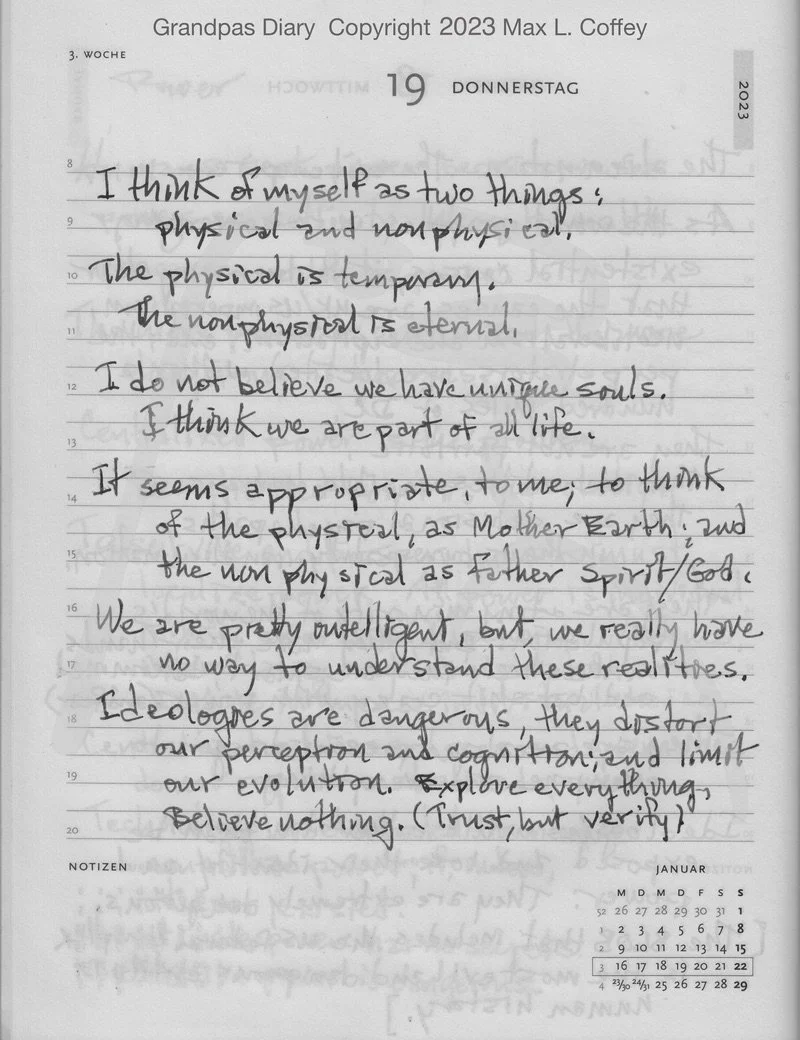 Grandpas Diary Copyright 2023 Max L. Coffey
3. WOCHE
19 DONNERSTAG
2023
8 I think of myself as two things:
9 physical and nonphysical.
10 The physical is temporary.
11 The nonphysical is eternal.
12 I do not believe we have unique souls.
13 I think we are part of all life.
14 It seems appropriate, to me; to think
of the physical, as Mother Earth; and
15 the non physical as Father Spirit/God.
16 We are pretty intelligent, but, we really have
17 no way to understand these realities.
18 Ideologies are dangerous, they distort
our perception and cognition; and limit
19 our evolution. Explore everything,
20 Believe nothing. (Trust, but verify)
NOTIZEN
JANUAR
M D M D F S S
52 26 27 28 29 30 31 1
1 2 3 4 5 6 7 8
2 9 10 11 12 13 14 15
3 16 17 18 19 20 21 22
4 23/30 24/31 25 26 27 28 29